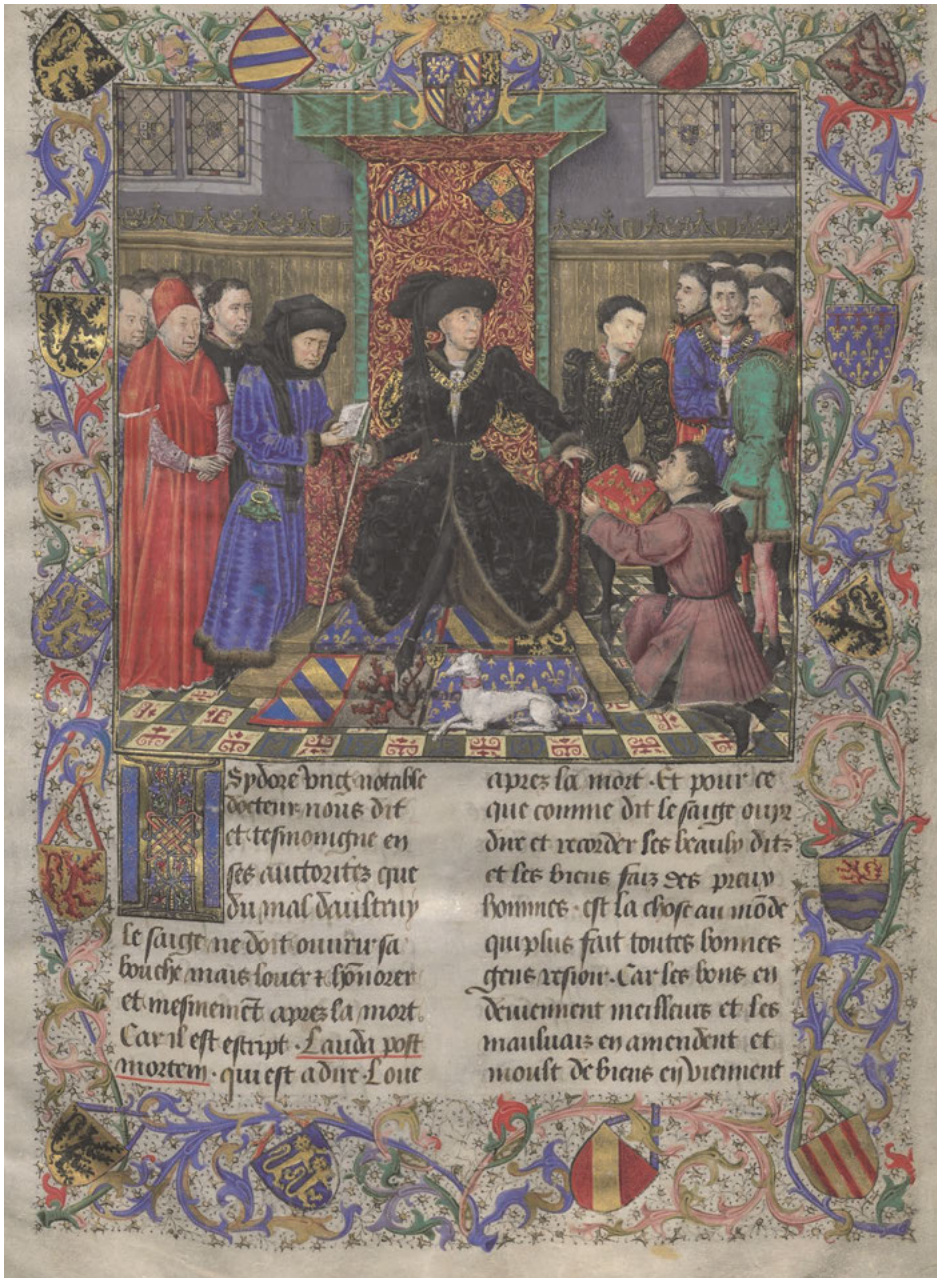 Sydore vng notable
docteur nous dit
et tesmoingne en
ses auttoritez que
du mal daultruy
le saige ne doit ouurir sa
bouche mais louer & hōnorer
et mesmemēt aprez la mort.
Car il est escript. Lauda post
mortem. qui est a dire. Loue
aprez la mort. Et pour ce
que comme dit le saige ouyr
dire et recorder les beaulx ditz
et les biens faiz des preux
hommes. est la chose au mōde
qui plus fait toutes bonnes
gens resioir. Car les bons en
deuiennent meilleurs et les
mauluaiz en amendent et
moult de biens en viennent